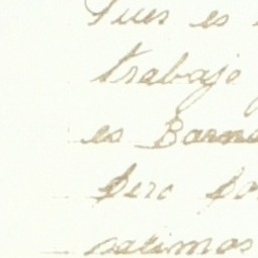 Pues es
trabajo
es
Pero
salimos